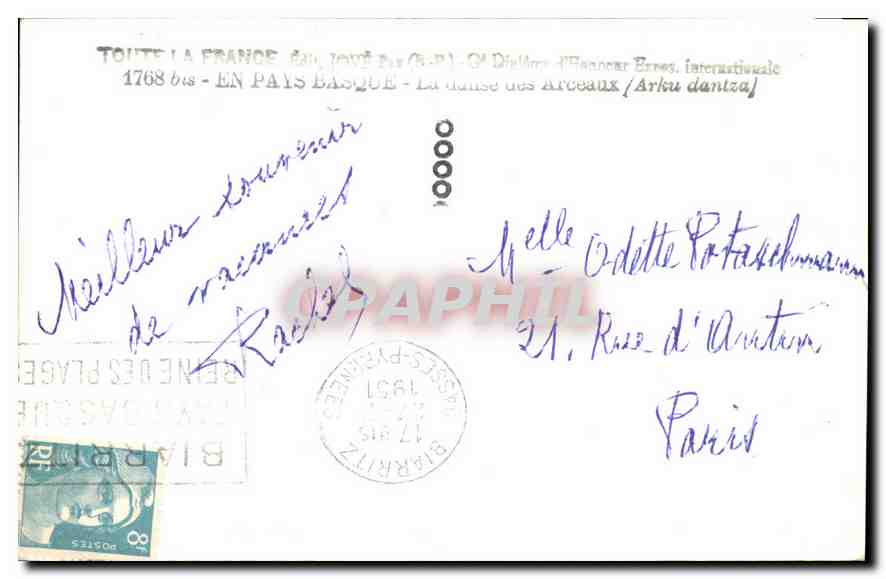 TOUTE LA FRANCE Édit. JOVÉ Pau (B.-P.) - Gd Diplôme d'Honneur Expos. Internationale
1768 bis - EN PAYS BASQUE - La danse des Arceaux (Arku dantza)
Meilleur souvenir
de vacances
Rachel
Melle Odette Potaschmann
21, Rue d'Antin
Paris
CPAPHIL
BIARRITZ
PAYS BASQUE
REINE DES PLAGES
BIARRITZ
17 H 15
1951
BASSES-PYRENEES
RF
POSTES
8F